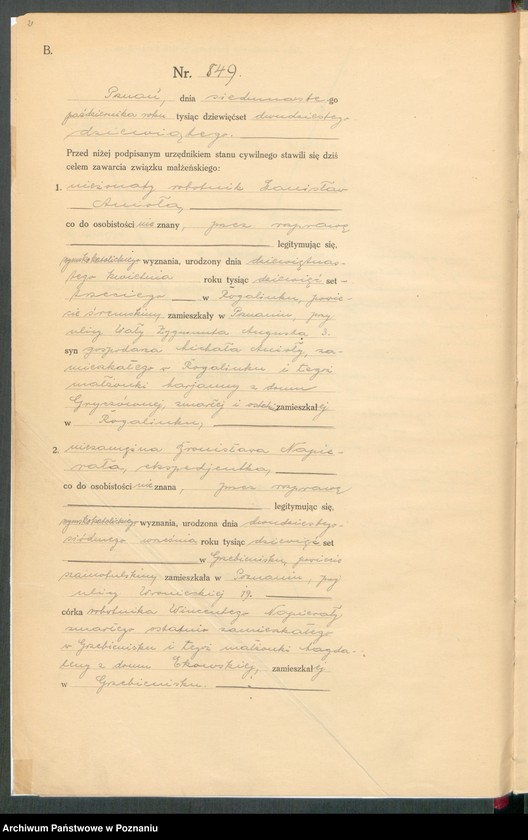 B.
Nr. 849.
Poznań, dnia siedmnaste-go
października roku tysiąc dziewięćset dwudziestego
dziewiątego.
Przed niżej podpisanym urzędnikiem stanu cywilnego stawili się dziś
celem zawarcia związku małżeńskiego:
1. nieżonaty robotnik Stanisław
Anioła,
co do osobistości nie znany, przez rozprawę
legitymując się,
rzymskokatolickiego wyznania, urodzony dnia dziewiętnas-
tego kwietnia roku tysiąc dziewięć set
trzeciego w Rogalinku, powie-
cie śremskim, zamieszkały w Poznaniu, przy
ulicy Wały Zygmunta Augusta 3.
syn gospodarza Michała Anioły, za-
mieszkałego w Rogalinku i tegoż
małżonki Marjanny z domu
zmarłej i ostat. zamieszkałej
w Rogalinku,
2. niezamężna Bronisława Napie-
rała, ekspedjentka,
co do osobistości nie znana, przez rozprawę
legitymując się,
rzymskokatolickiego wyznania, urodzona dnia dwudziestego-
siódmego września roku tysiąc dziewięć set
w Grzebienisku, powiecie
szamotulskim zamieszkała w Poznaniu, przy
ulicy Wronieckiej 19.
córka robotnika Wincentego Napierały,
zmarłego ostatnio zamieszkałego
w Grzebienisku i tegoż małżonki Magda-
leny z domu zamieszkałej
w Grzebienisku.
Archiwum Państwowe w Poznaniu